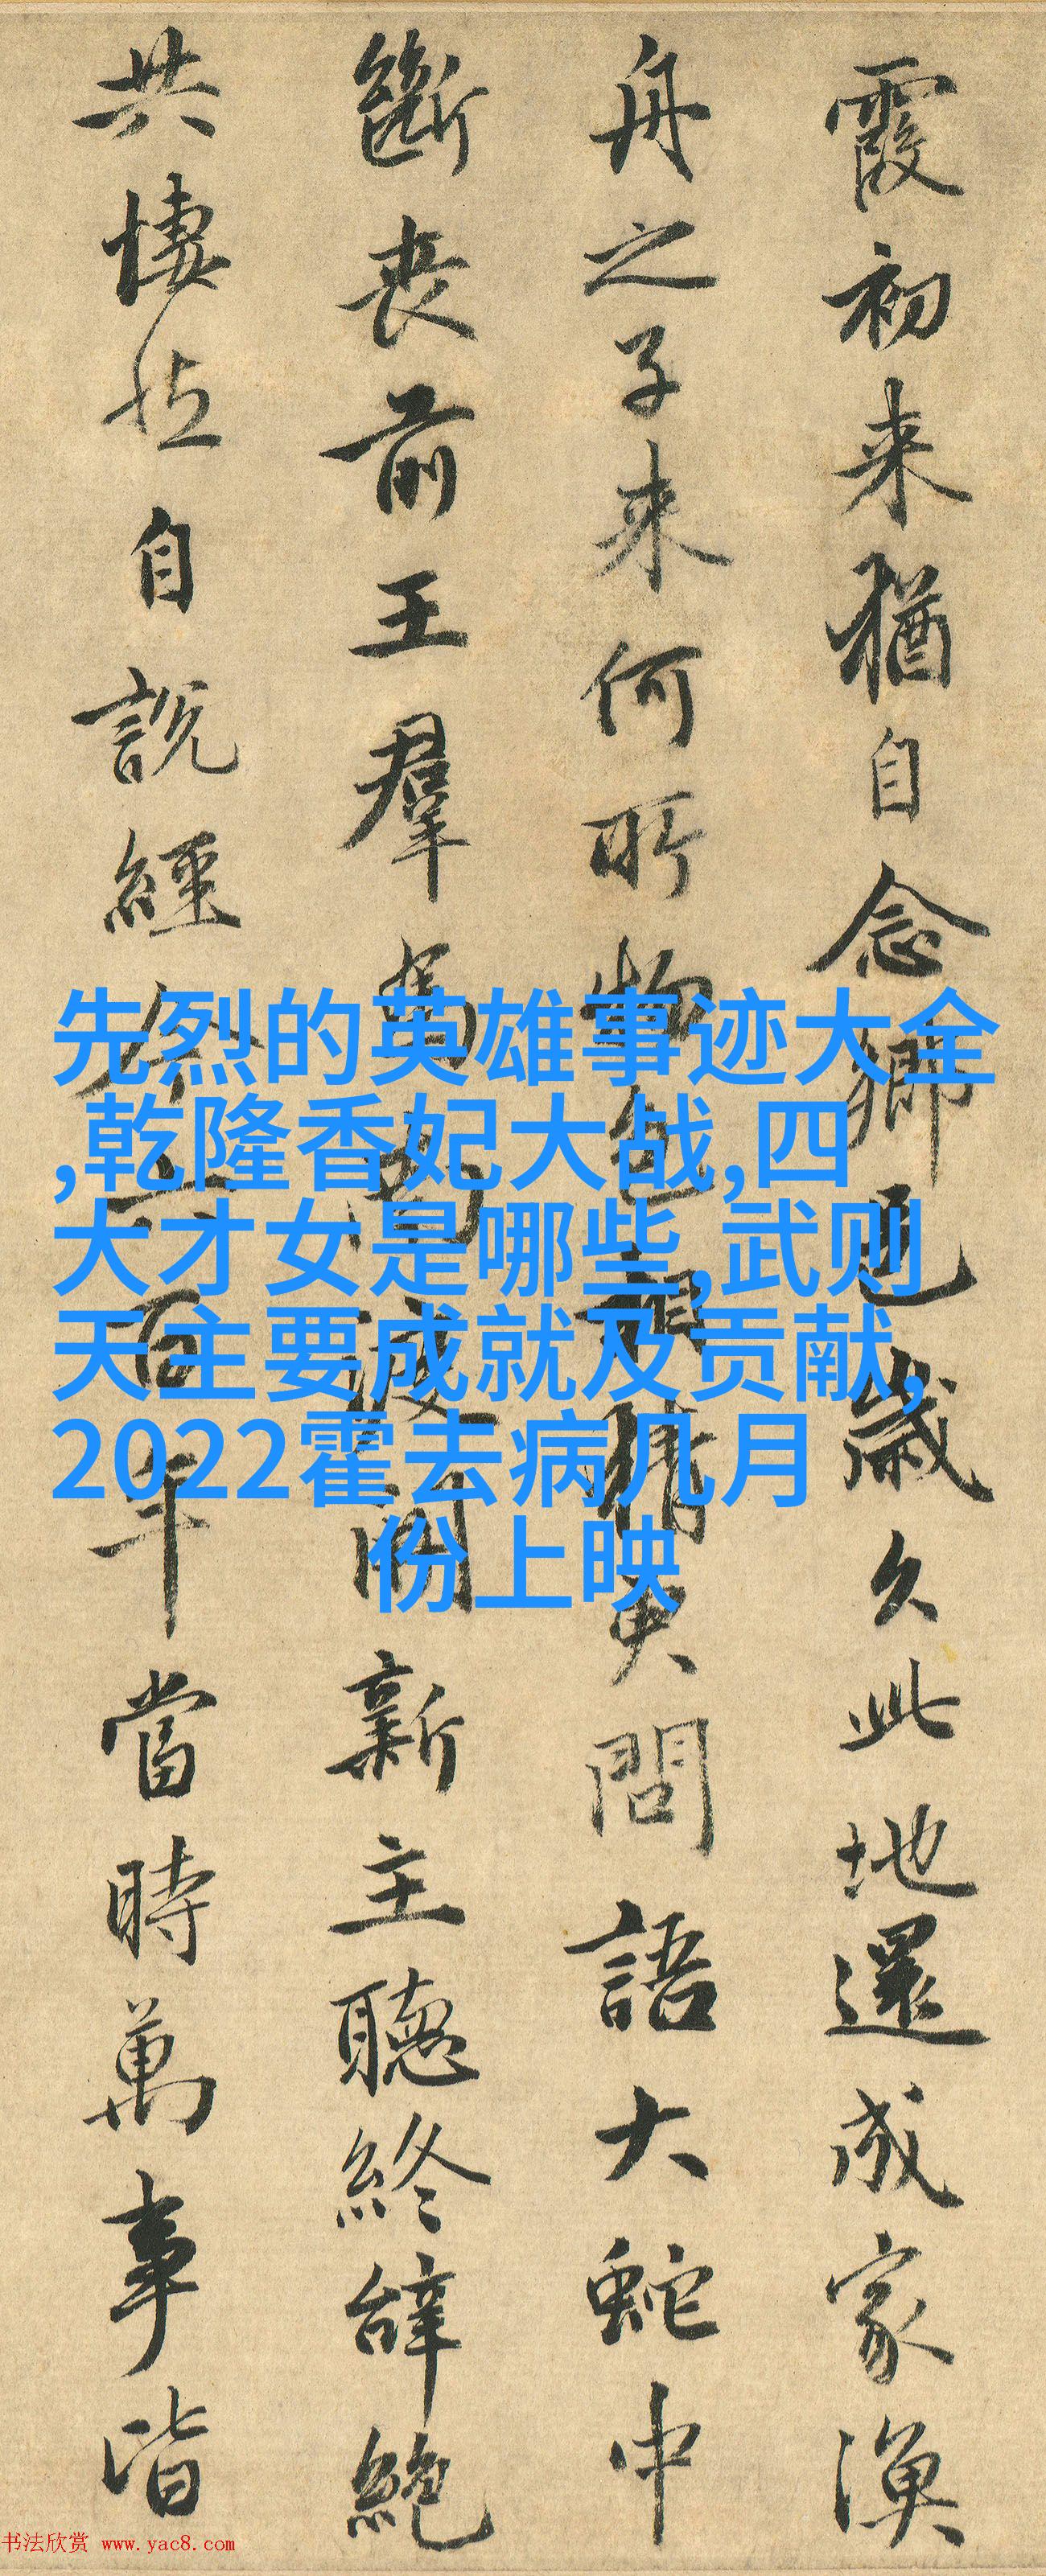 霞初来猶自念鄉邑歲久此地還成家漁
舟之子来何所物色相猜更問語大蛇中
斷喪前王羣馬南渡開新主聽終辭絕
共悽然自說經今六百年當時萬事皆
先烈的英雄事迹大全
,乾隆香妃大战,四
大才女是哪些,武则
天主要成就及贡献,
2022霍去病几月
份上映
书法欣赏 www.yac8.com